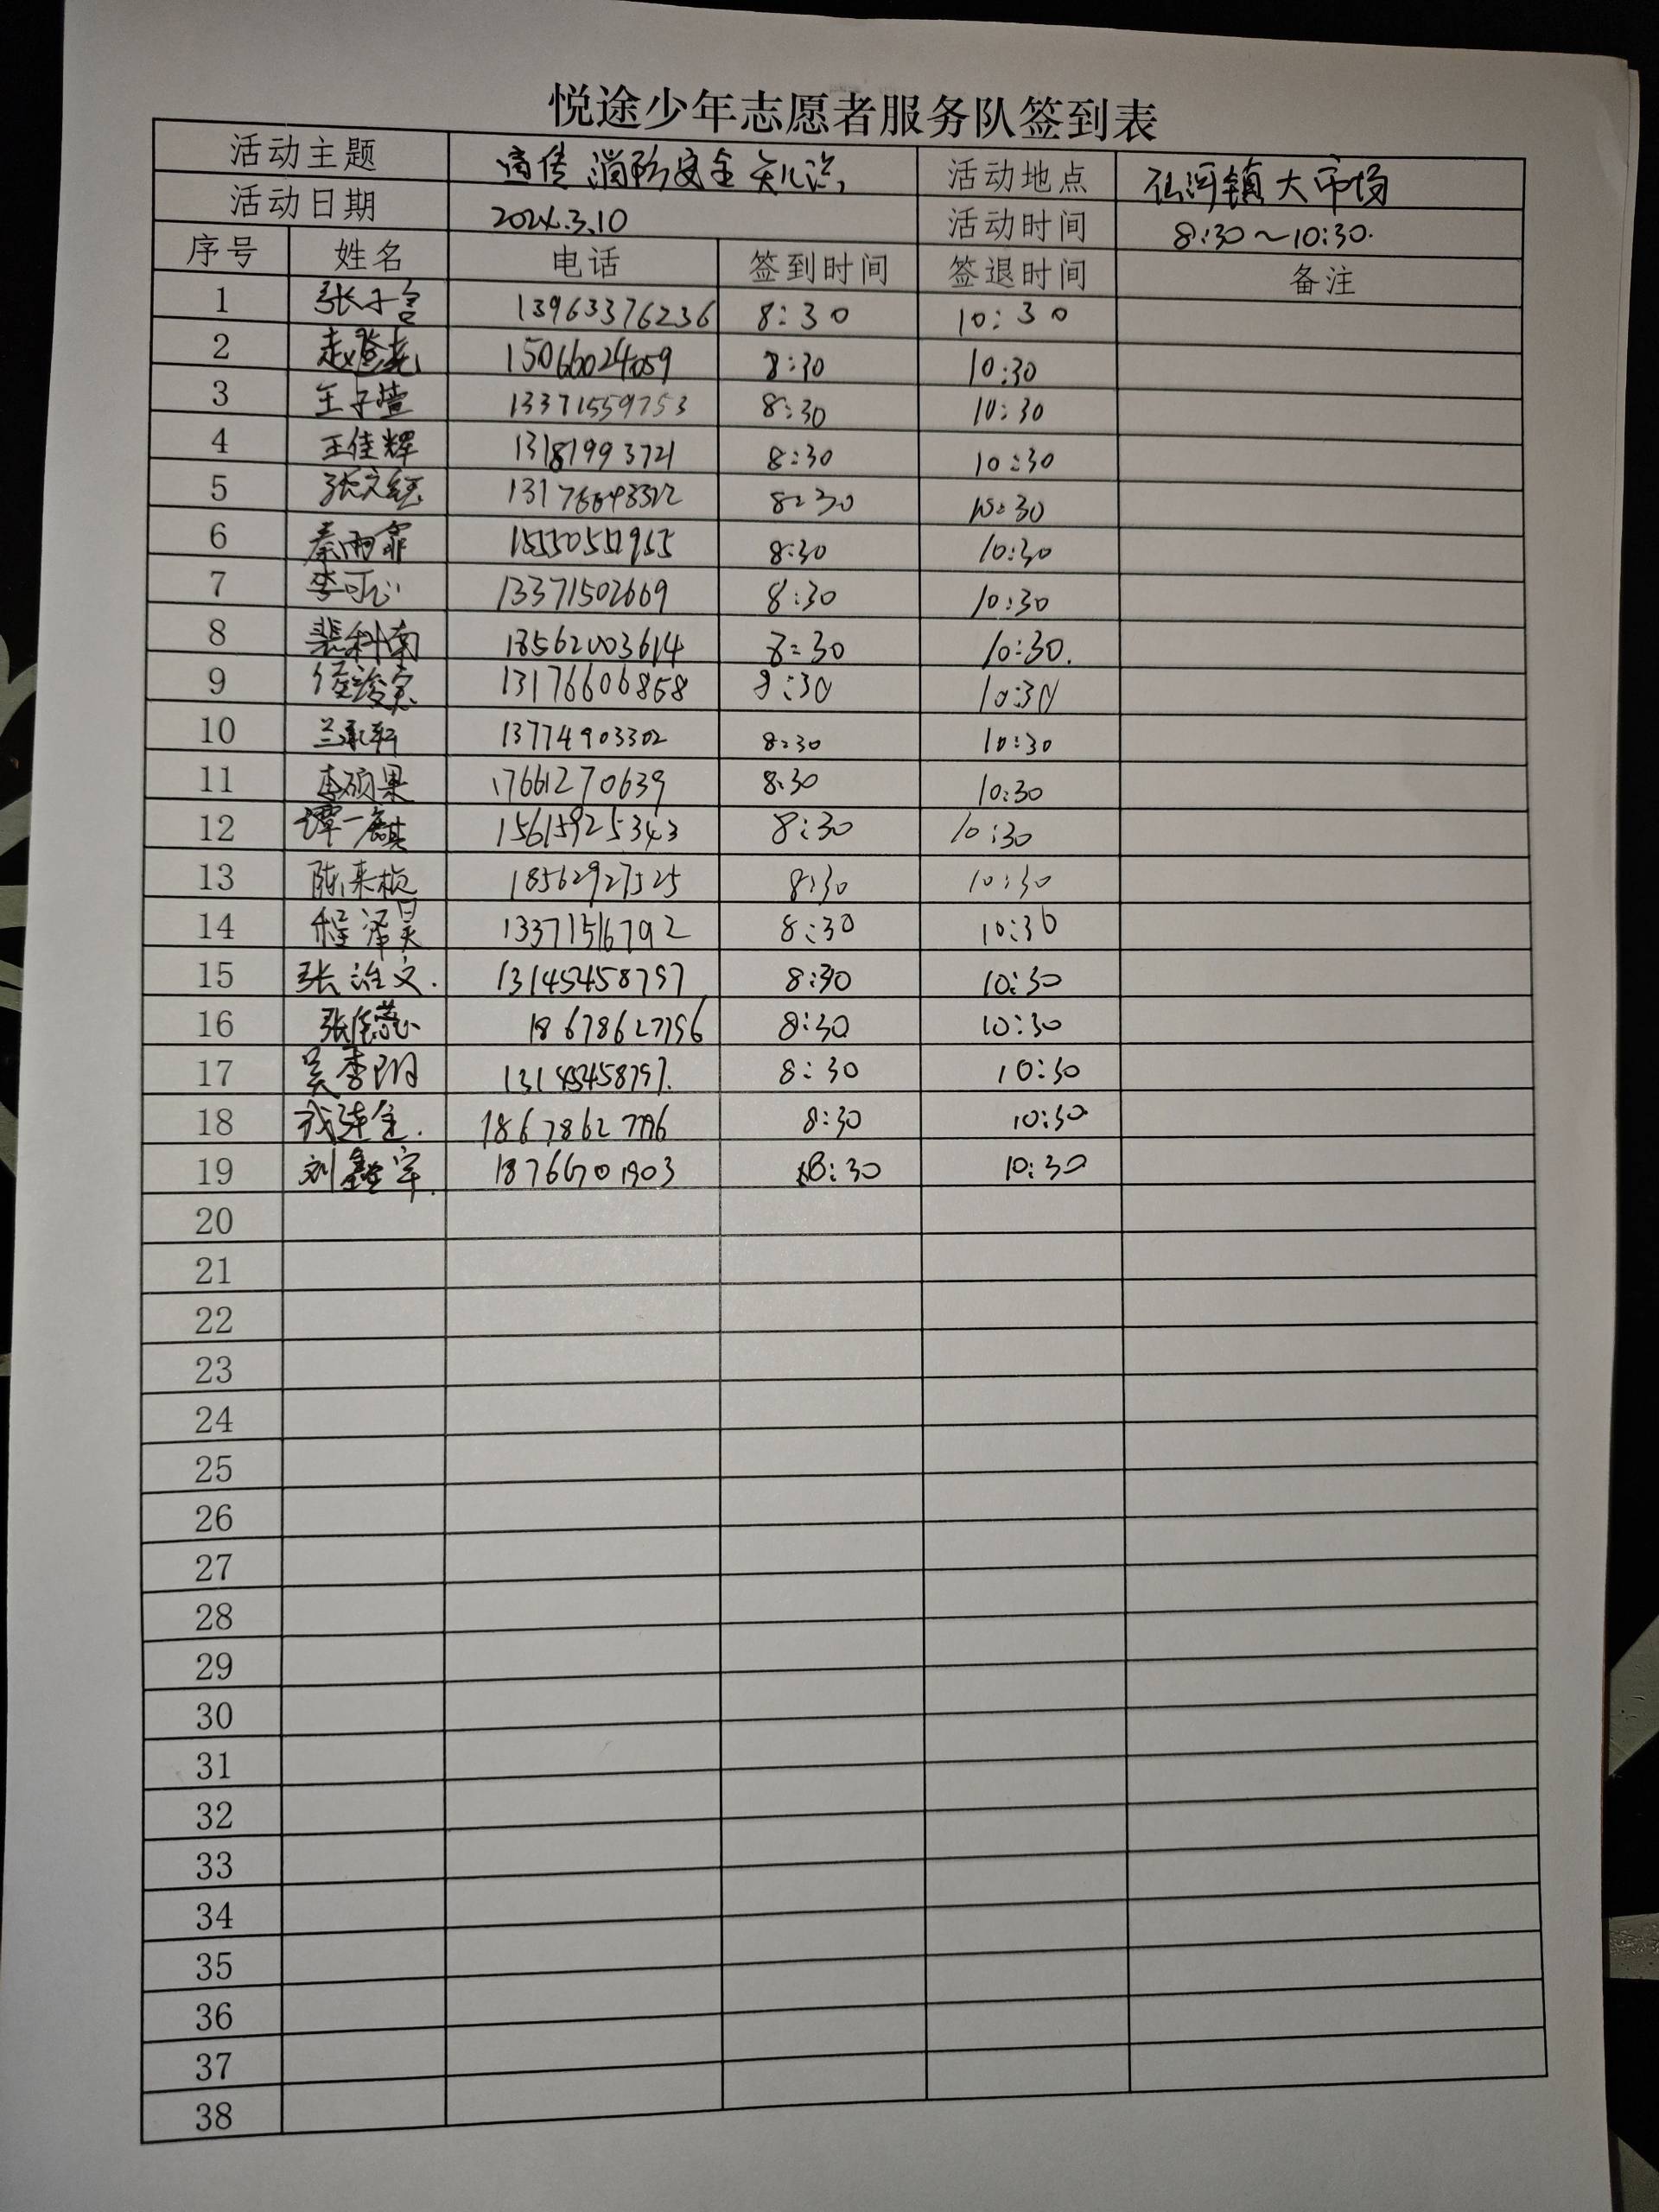 悦途少年志愿者服务队签到表
活动主题 宣传消防安全知识 活动地点 仙河镇大市场
活动日期 2024.3.10 活动时间 8:30~10:30.
序号 姓名 电话 签到时间 签退时间 备注
1 张子言 13963376236 8:30 10:30
2 赵登尧 15066024059 8:30 10:30
3 王子萱 13371559753 8:30 10:30
4 王佳辉 13181993721 8:30 10:30
5 张文 8:30 10:30
6 秦雨霏 8:30 10:30
7 李可心 13371502669 8:30 10:30
8 裴科南 18562003614 8:30 10:30.
9 13176606868 8:30 10:30
10 兰承轩 13774903302 8:30 10:30
11 李硕果 17661270639 8:30 10:30
12 谭一麒 15615925343 8:30 10:30
13 陈来桢 18562927525 8:30 10:30
14 程泽昊 13371516792 8:30 10:30
15 张治文. 13145458797 8:30 10:30
16 18678627796 8:30 10:30
17 吴李玥 13145458797. 8:30 10:30
18 18678627796 8:30 10:30
19 刘鑫宇. 18766701903 8:30 10:30
20
21
22
23
24
25
26
27
28
29
30
31
32
33
34
35
36
37
38